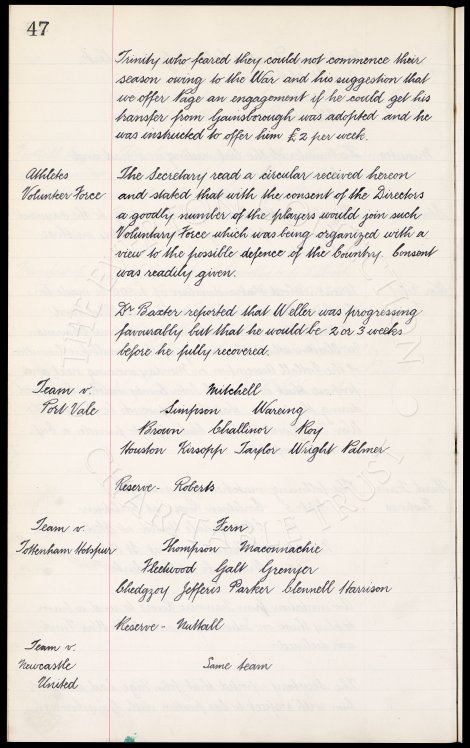 47
Trinity who feared they could not commence their
season owing to the War and his suggestion that
we offer Page an engagement if he could get his
transfer from Gainsborough was adopted and he
was instructed to offer him £2 per week.
Athletes
Volunteer Force
The Secretary read a circular received hereon
and stated that with the consent of the Directors
a goodly number of the players would join such
Voluntary Force which was being organized with a
view to the possible defence of the Country. Consent
was readily given.
Dr Baxter reported that Weller was progressing
favourably but that he would be 2 or 3 weeks
before he fully recovered.
Team v.
Port Vale
Mitchell
Simpson Wareing
Brown Challinor Roy
Houston Kirsopp Taylor Wright Palmer
Reserve - Roberts
Team v.
Tottenham Hotspur
Fern
Thompson Maconnachie
Fleetwood Galt Grenyer
Chedgzoy Jefferis Parker Clennell Harrison
Reserve - Nuttall
Team v.
Newcastle
United
Same team
CHARITABLE TRUST